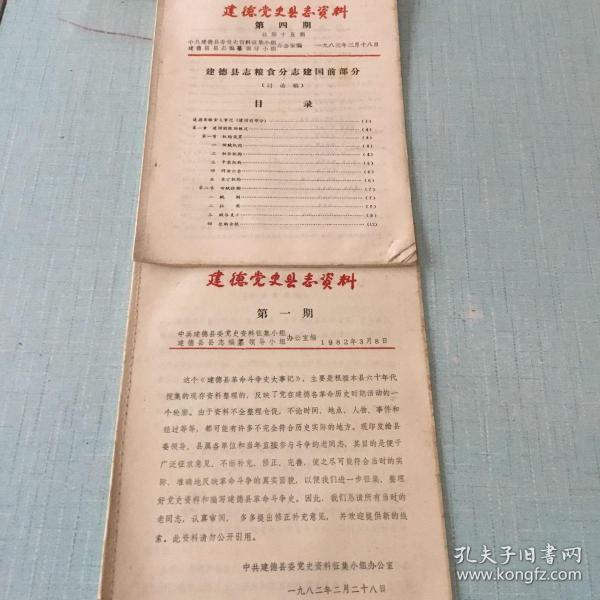 建德党史县志资料
第四期
总第十五期
中共建德县委党史资料征集小组
建德县县志编纂领导小组 办公室编 一九八三年三月十八日
建德县志粮食分志建国前部分
(讨论稿)
目 录
第一节 机构设置
一 田赋机构
第二节
一 赋 制
二 征 实
建德党史县志资料
第一期
中共建德县委党史资料征集小组
建德县县志编纂领导小组 办公室编 1982年3月8日
这个《建德县革命斗争史大事记》,主要是根据本县六十年代
搜集的现存资料整理的,反映了党在建德各革命历史时期活动的一
个轮廓。由于资料不全整理仓促,不论时间、地点、人物、事件和
经过等等,都可能有许多不完全符合历史实际的地方。现印发给县
委领导、县属各单位和当年直接参与斗争的老同志,其目的是便于
广泛征求意见,不断补充、修正、完善,使之尽可能符合当时的实
际,准确地反映革命斗争的真实面貌,以便我们进一步征集、整理
好党史资料和编写建德县革命斗争史。因此,我们恳请所有当时的
老同志,认真审阅,多多提出修正补充意见,并欢迎提供新的线
索。此资料请勿公开引用。
中共建德县委党史资料征集小组办公室
一九八二年二月二十八日
孔夫子旧书网
www.kongfz.com